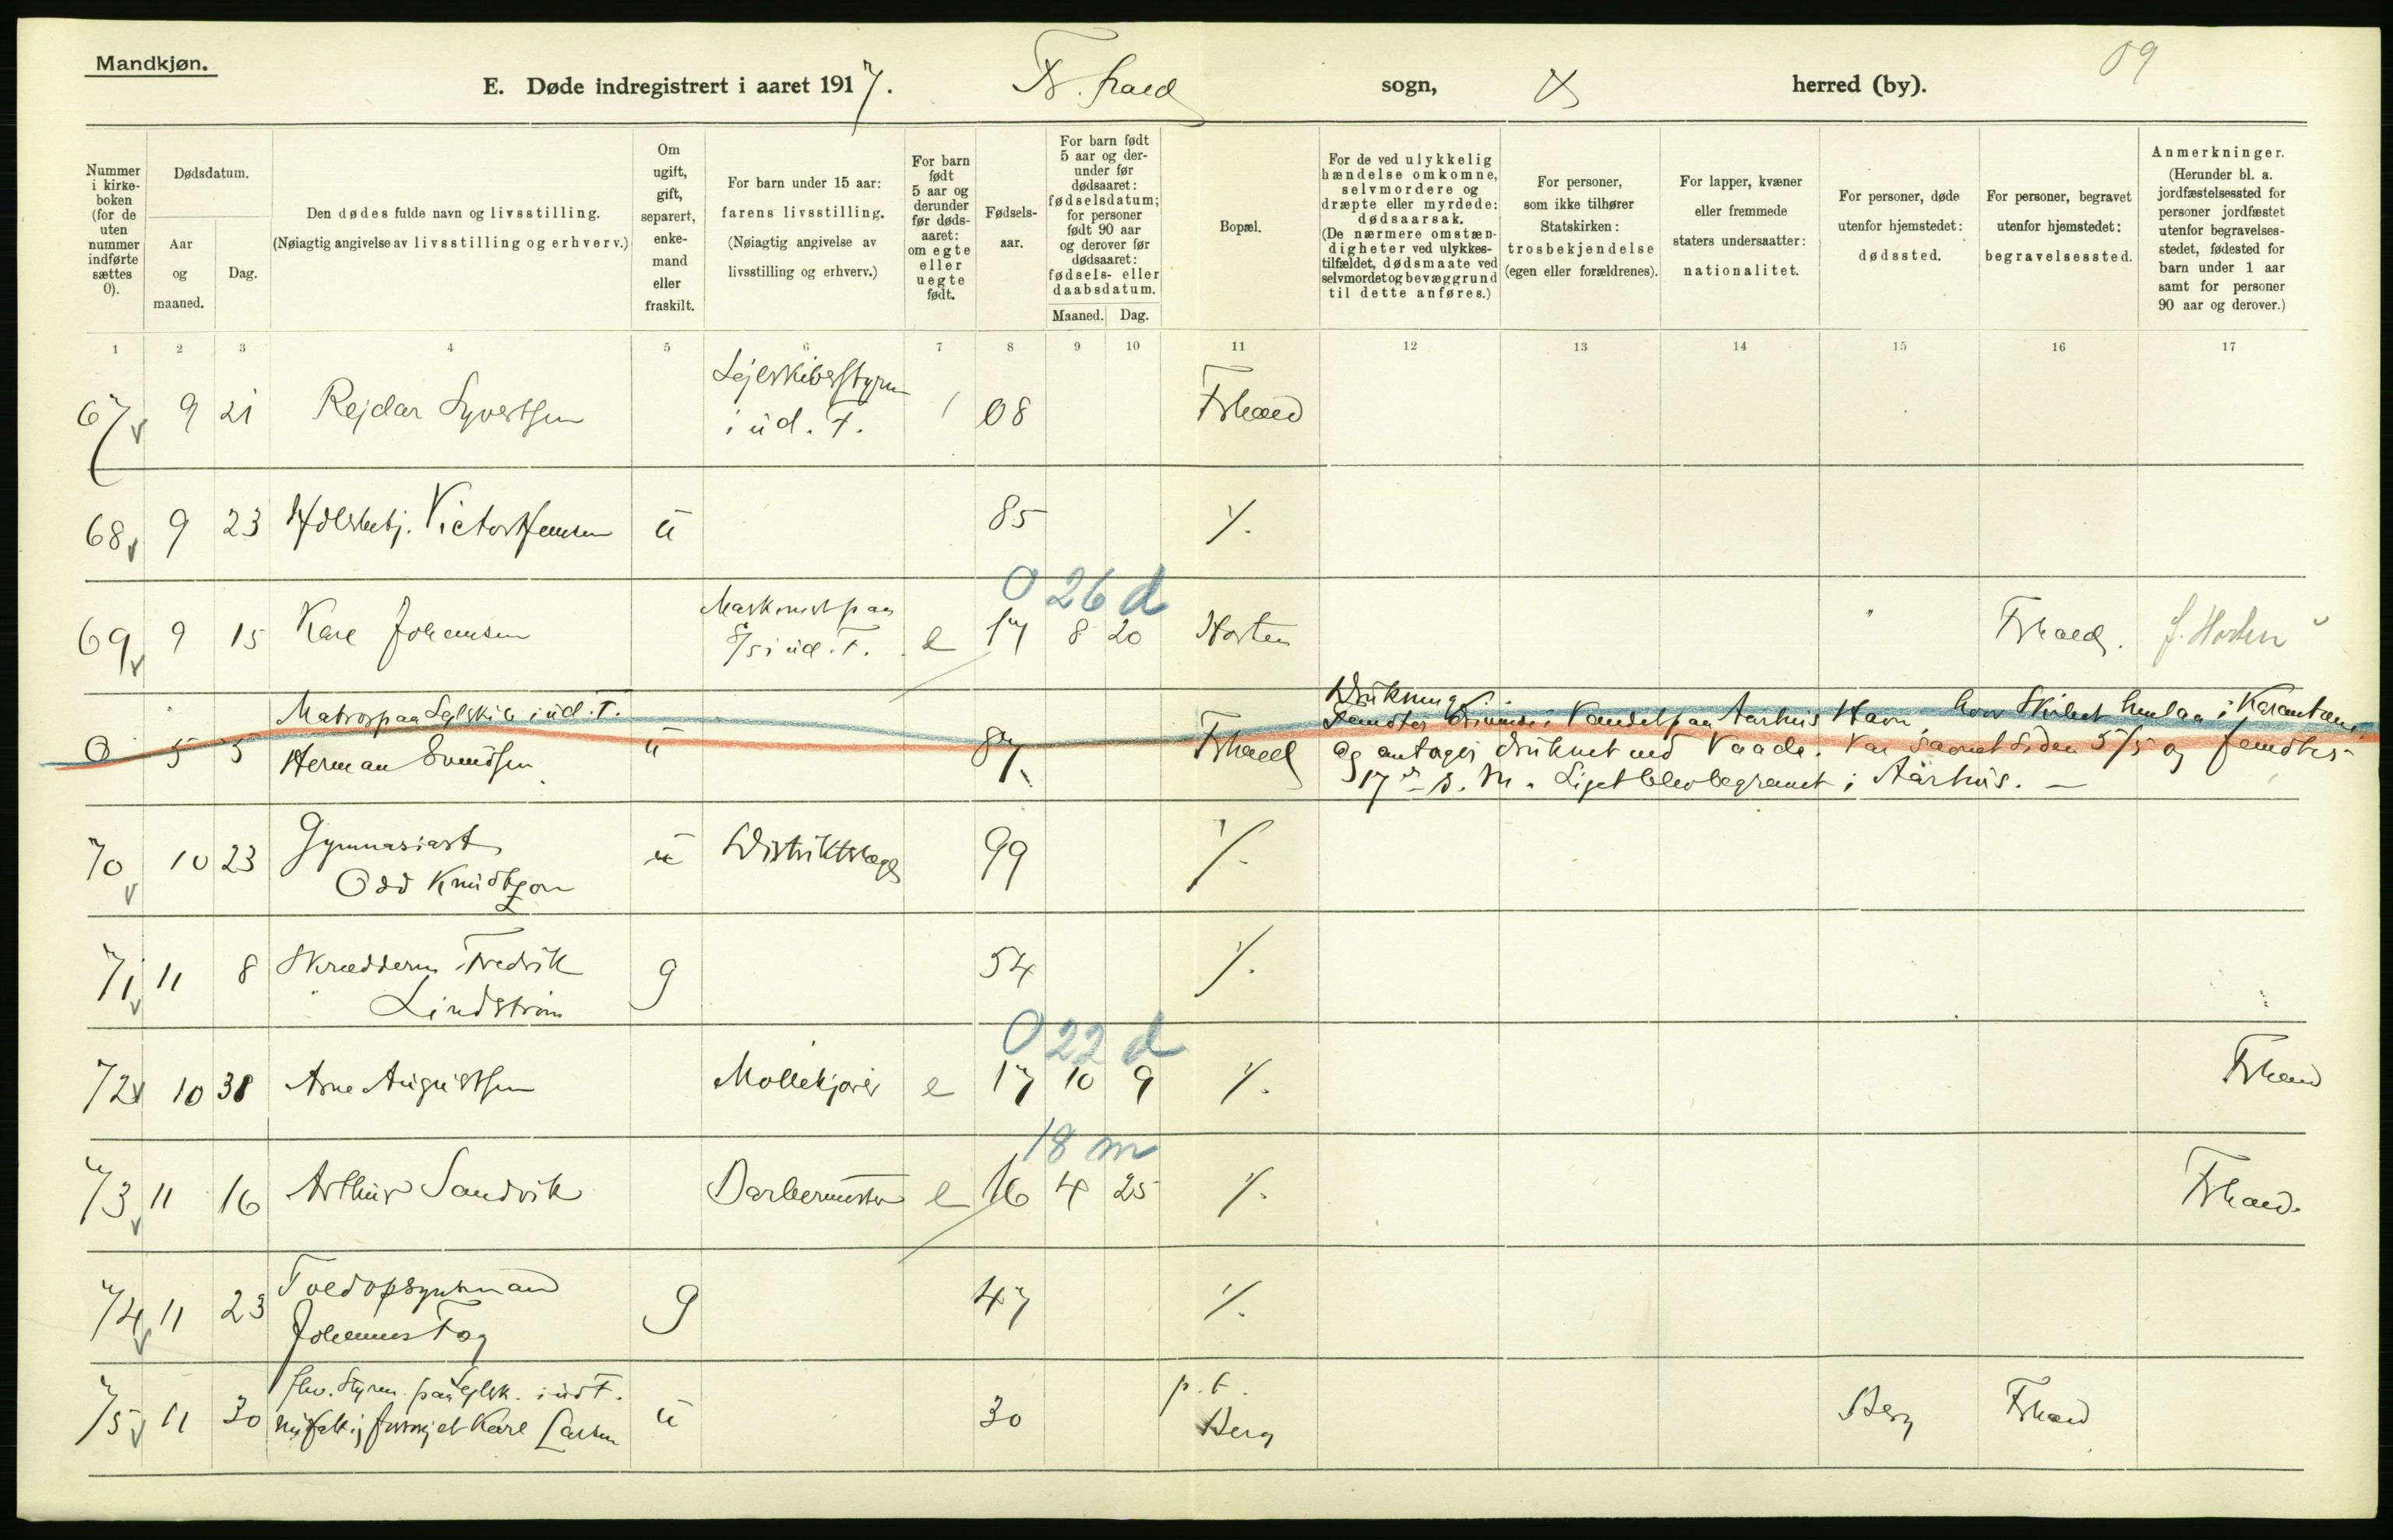 Mandkjøn.
E. Døde indregistrert i aaret 1917. Fr.hald sogn, herred (by).
09
Nummer i kirkeboken (for de uten nummer indførte sættes 0).
Dødsdatum.
Aar og maaned.
Dag.
Den dødes fulde navn og livsstilling. (Nøiagtig angivelse av livsstilling og erhverv.)
Om ugift, gift, separert, enkemand eller fraskilt.
For barn under 15 aar: farens livsstilling. (Nøiagtig angivelse av livsstilling og erhverv.)
For barn født 5 aar og derunder før dødsaaret: om egte eller uegte født.
Fødselsaar.
For barn født 5 aar og derunder før dødsaaret: fødselsdatum; for personer født 90 aar og derover før dødsaaret: fødsels- eller daabsdatum.
Maaned. Dag.
Bopæl.
For de ved ulykkelig hændelse omkomne, selvmordere og dræpte eller myrdede: dødsaarsak. (De nærmere omstændigheter ved ulykkestilfældet, dødsmaate ved selvmordet og bevæggrund til dette anføres.)
For personer, som ikke tilhører Statskirken: trosbekjendelse (egen eller forældrenes).
For lapper, kvæner eller fremmede staters undersaatter: nationalitet.
For personer, døde utenfor hjemstedet: dødssted.
For personer, begravet utenfor hjemstedet: begravelsessted.
Anmerkninger. (Herunder bl. a. jordfæstelsessted for personer jordfæstet utenfor begravelsesstedet, fødested for barn under 1 aar samt for personer 90 aar og derover.)
1 2 3 4 5 6 7 8 9 10 11 12 13 14 15 16 17
Sejlskibsstyrm
67 9 21 Rejdar Syvertsen i ud. F. 08 Frhald
68 9 23 Victor Hansen u 85 ./.
0 26 d
Maskinist paa
69 9 15 Kare Johansen S/S i ud. F. e 17 8 20 Horten Frhald. f. Horten
Matros paa Sejlskib i ud. F. Drukning.
Fandtes i Vandet paa Aarhus Havn, hvor Skibet henlaa i Karantæne
0 5 5 Herman Svendsen u 87 Frhald og antages druknet ved Vaade. Var savnet siden 5/5 og fandtes
17de s. M. Liget blev begravet i Aarhus. —
Gymnasiast
70 10 23 Odd Knudtzon u Distriktslæge 99 ./.
71 11 8 Skrædderm Fredrik g 54 ./.
Lindstrøm
0 22 d
72 10 Arne Augustsen Møllekjører e 17 10 9 ./. Frhald
18 m
73 11 16 Arthur Sandvik Barbermester e 16 4 25 ./. Frhald.
Toldopsynsmand
74 11 23 Johannes g 47 ./.
fhv. Styrm. paa Sejlsk. i ud F. p. t.
75 11 30 Larsen u 30 Berg Berg Frhald